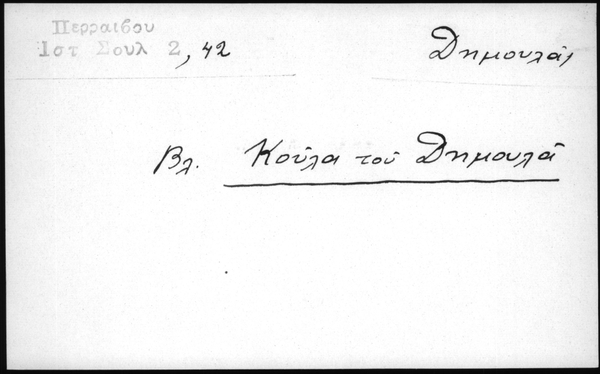 Περραιβου
Ιστ Σουλ 2, 42
Δημουλᾶς
Βλ. Κούλα τοῦ Δημουλᾶ